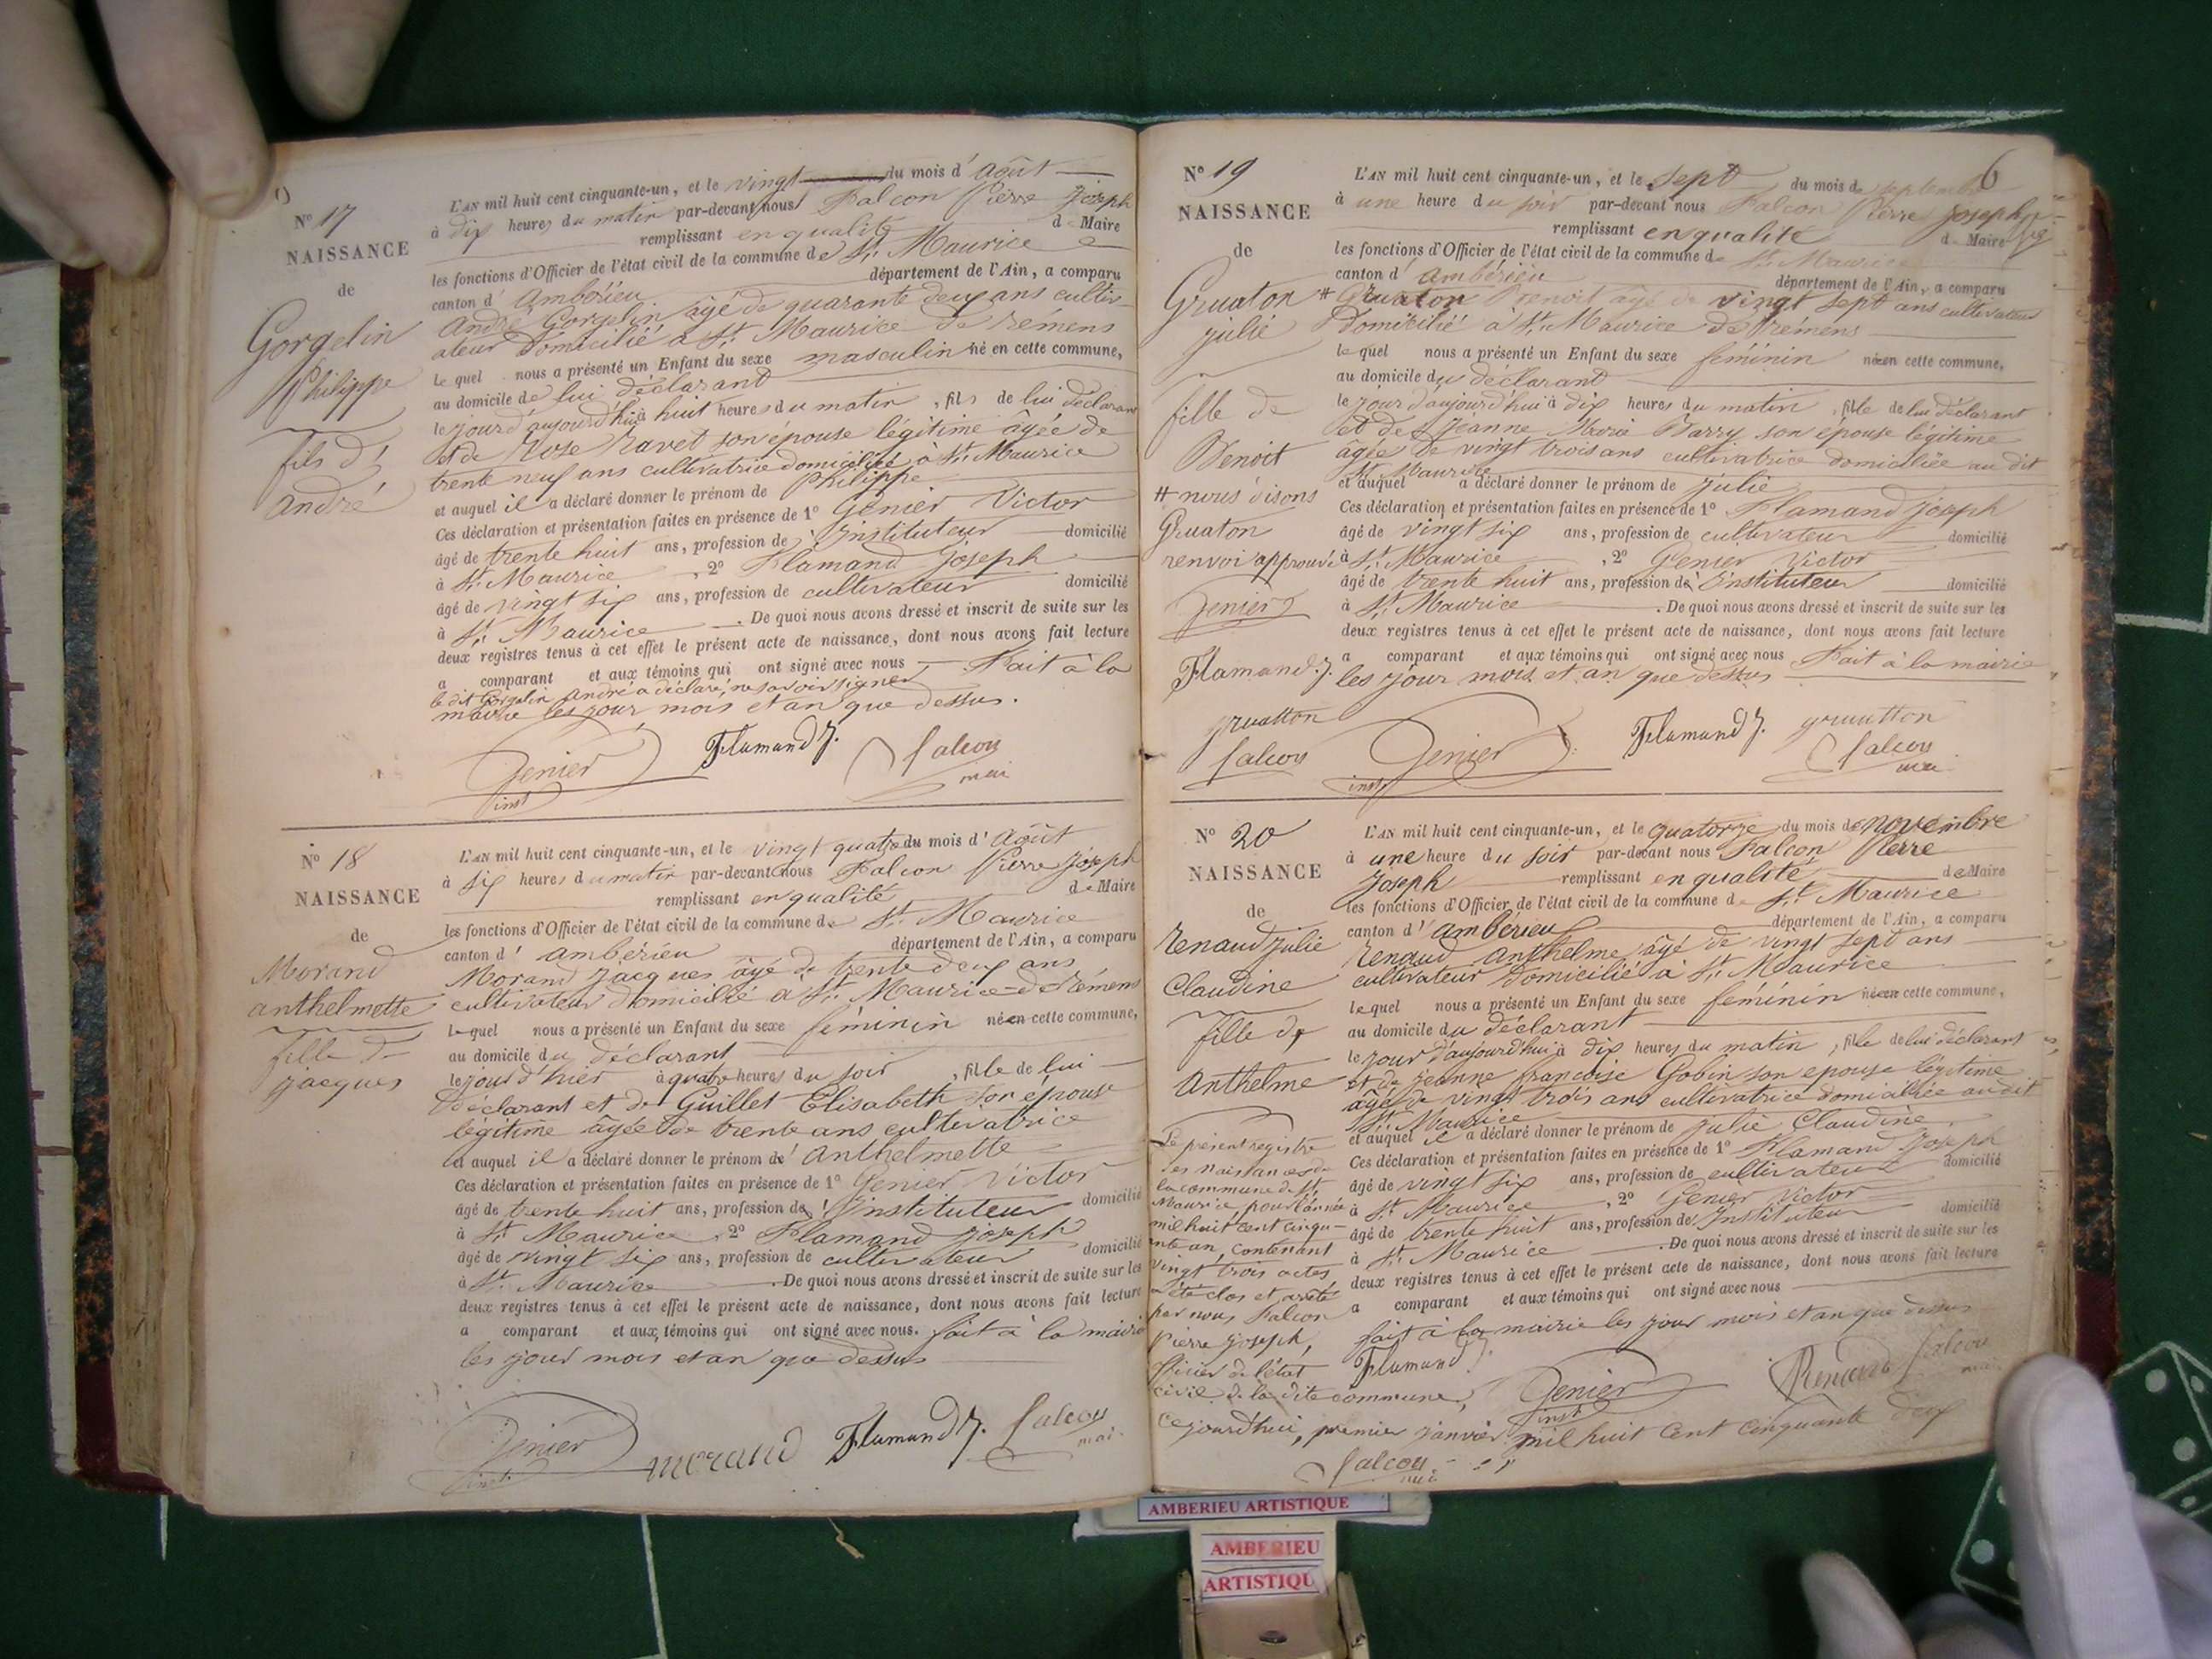 N° 17
NAISSANCE
de
Gorgelin
Philippe
fils d'
André
L'AN mil huit cent cinquante-un, et le vingt du mois d'Août
à dix heures du matin par-devant nous Falcon Pierre Joseph
remplissant en qualité de Maire
les fonctions d'Officier de l'état civil de la commune de St. Maurice
canton d'Ambérieu département de l'Ain, a comparu
André Gorgelin âgé de quarante deux ans cultiv-
ateur domicilié à St. Maurice de Rémens
lequel nous a présenté un Enfant du sexe masculin né en cette commune,
au domicile de lui déclarant
le jour d'aujourd'hui à huit heures du matin, fils de lui déclarant
et de Rose Ravet son épouse légitime âgée de
trente neuf ans cultivatrice domiciliée à St. Maurice
et auquel il a déclaré donner le prénom de Philippe
Ces déclaration et présentation faites en présence de 1° Genier Victor
âgé de trente huit ans, profession de Instituteur domicilié
à St. Maurice, 2° Flamand Joseph
âgé de vingt six ans, profession de cultivateur domicilié
à St. Maurice. De quoi nous avons dressé et inscrit de suite sur les
deux registres tenus à cet effet le présent acte de naissance, dont nous avons fait lecture
a comparant et aux témoins qui ont signé avec nous Fait à la
le dit Gorgelin André a déclaré ne savoir signer
mairie les jour mois et an que dessus.
Genier
inst
Flamand J.
falcon
mai
N° 18
NAISSANCE
de
Morand
anthelmette
fille de
jacques
L'AN mil huit cent cinquante-un, et le vingt quatre du mois d'Août
à six heures du matin par-devant nous Falcon Pierre Joseph
remplissant en qualité de Maire
les fonctions d'Officier de l'état civil de la commune de St. Maurice
canton d'ambérieu département de l'Ain, a comparu
Morand Jacques âgé de trente deux ans
cultivateur domicilié à St. Maurice de Rémens
lequel nous a présenté un Enfant du sexe féminin né en cette commune,
au domicile du déclarant
le jour d'hier à quatre heures du soir, fille de lui
déclarant et de Guillet Elisabeth son épouse
légitime âgée de trente ans cultivatrice
et auquel il a déclaré donner le prénom de anthelmette
Ces déclaration et présentation faites en présence de 1° Genier Victor
âgé de trente huit ans, profession de Instituteur domicilié
à St. Maurice, 2° Flamand Joseph
âgé de vingt six ans, profession de cultivateur domicilié
à St. Maurice. De quoi nous avons dressé et inscrit de suite sur les
deux registres tenus à cet effet le présent acte de naissance, dont nous avons fait lecture
a comparant et aux témoins qui ont signé avec nous. fait à la mairie
les jour mois et an que dessus
Genier
inst.
morand Flamand J. falcon
mai
6
N° 19
NAISSANCE
de
Gruaton
julie
fille de
Benoit
# nous disons
Gruaton
renvoi approuvé
Genier
Flamand J.
gruatton
falcon
L'AN mil huit cent cinquante-un, et le sept du mois de septembre
à une heure du soir par-devant nous Falcon Pierre Joseph
remplissant en qualité de Maire
les fonctions d'Officier de l'état civil de la commune de St. Maurice
canton d'ambérieu département de l'Ain, a comparu
# Gruaton Benoit âgé de vingt sept ans cultivateur
domicilié à St. Maurice de Rémens
lequel nous a présenté un Enfant du sexe féminin né en cette commune,
au domicile du déclarant
le jour d'aujourd'hui à dix heures du matin, fille de lui déclarant
et de Jeanne Marie Barry son épouse légitime
âgée de vingt trois ans cultivatrice domiciliée au dit
St Maurice
et auquel a déclaré donner le prénom de julie
Ces déclaration et présentation faites en présence de 1° Flamand Joseph
âgé de vingt six ans, profession de cultivateur domicilié
à St. Maurice, 2° Genier Victor
âgé de trente huit ans, profession de Instituteur domicilié
à St. Maurice. De quoi nous avons dressé et inscrit de suite sur les
deux registres tenus à cet effet le présent acte de naissance, dont nous avons fait lecture
a comparant et aux témoins qui ont signé avec nous Fait à la mairie
les jour mois et an que dessus
Genier
inst.
Flamand J. gruatton
falcon
mai
N° 20
NAISSANCE
de
Renaud julie
Claudine
fille de
Anthelme
L'AN mil huit cent cinquante-un, et le quatorze du mois de novembre
à une heure du soir par-devant nous Falcon Pierre
Joseph remplissant en qualité de Maire
les fonctions d'Officier de l'état civil de la commune de St. Maurice
canton d'ambérieu département de l'Ain, a comparu
Renaud Anthelme âgé de vingt sept ans
cultivateur domicilié à St. Maurice
lequel nous a présenté un Enfant du sexe féminin né en cette commune,
au domicile du déclarant
le jour d'aujourd'hui à dix heures du matin, fille de lui déclarant
et de jeanne françoise Gobin son epouse légitime
âgée de vingt trois ans cultivatrice domiciliée audit
St. Maurice
et auquel il a déclaré donner le prénom de julie Claudine
Ces déclaration et présentation faites en présence de 1° Flamand Joseph
âgé de vingt six ans, profession de cultivateur domicilié
à St. Maurice, 2° Genier Victor
âgé de trente huit ans, profession de Instituteur domicilié
à St. Maurice. De quoi nous avons dressé et inscrit de suite sur les
deux registres tenus à cet effet le présent acte de naissance, dont nous avons fait lecture
a comparant et aux témoins qui ont signé avec nous
fait à la mairie les jour mois et an que dessus
Flamand J.
Genier
inst
Renaud falcon
mai
Le présent registre
des naissances de
la commune de St.
Maurice, pour l'année
mil huit cent cinqu-
ante un, contenant
vingt trois actes
a été clos et arrêté
par nous Falcon
Pierre Joseph,
officier de l'état
civil de la dite commune,
ce jourd'hui, premier janvier mil huit cent cinquante deux
falcon
mai
AMBERIEU ARTISTIQUE
AMBERIEU
ARTISTIQU